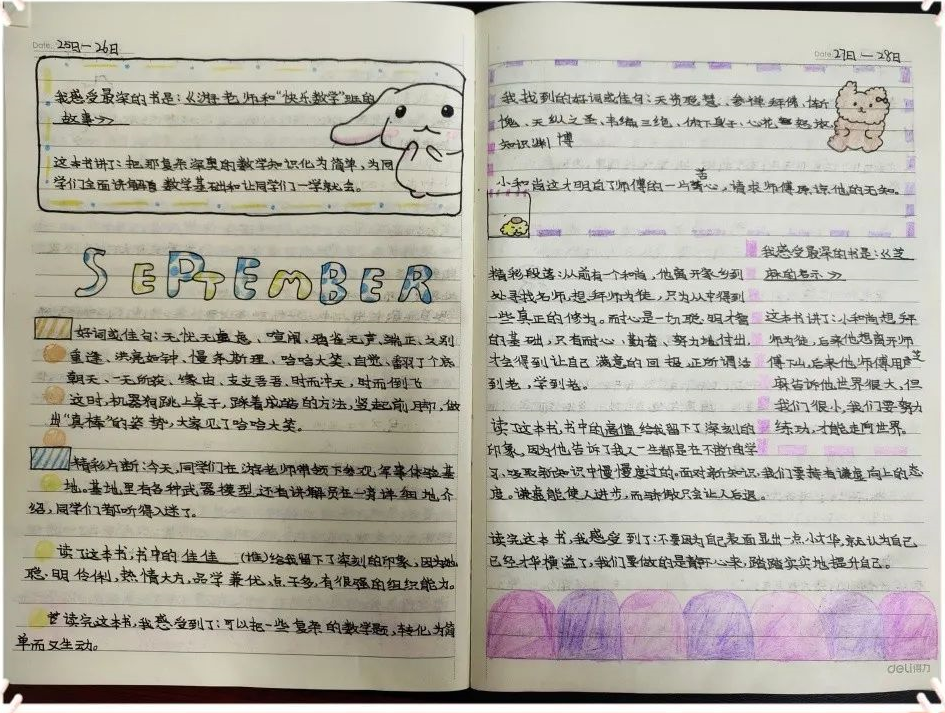 Date. 25日—26日
我感受最深的书是:《游老师和"快乐数学"班的
故事》
这本书讲了:把那复杂深奥的数学知识化为简单,为同
学们全面讲解 数学基础和让同学们一学就会。
SEPTEMBER
好词或佳句:无忧无虑、喧闹、鸦雀无声、端正、久别
重逢、洪亮如钟、慢条斯理、哈哈大笑、自觉、翻了个底
朝天、一无所获、缘由、支支吾吾、时而冲天,时而倒飞
这时,机器狗跳上桌子,踩着 的方法,竖起前脚,做
出"真棒"的姿势,大家见了哈哈大笑。
精彩片断:今天,同学们在游老师带领下参观,军事体验基
地。基地里有各种武器模型,还有讲解员在一旁详细地介
绍,同学们都听得入迷了。
读了这本书,书中的 佳佳 (谁)给我留下了深刻的印象,因为她
聪明伶俐,热情大方,品学兼优,点子多,有很强的组织能力。
读完这本书,我感受到了:可以把一些复杂的数学题,转化为简
单而又生动。
Date. 27日—28日
我找到的好词或佳句:天资聪慧、参禅拜佛、惭
愧、天纵之圣、韦编三绝、俯下身子、心花怒放
知识渊博
小和尚这才明白了师傅的一片苦心,请求师傅 他的无知。
精彩段落:从前有一个和尚,他离开家乡到
处寻找名师,想拜师为徒,只为从中得到
一些真正的修为。而耐心是一切聪明才智
的基础,只有耐心、勤奋、努力地付出,
才会得到让自己满意的回报,正所谓活
到老,学到老。
我感受最深的书是:《芝
麻的启示》
这本书讲了:小和尚想拜
师为徒,后来他想离开师
傅下山,后来他师傅用芝
麻告诉他世界很大,但
我们很小,我们要努力
练功,才能走向世界。
读了这本书,书中的 高僧 给我留下了深刻的
印象,因为他告诉了我人一生都是在不断地学
习、吸取新知识中慢慢度过的。面对新知识,我们要持有谦虚向上的态
度。谦虚能使人进步,而骄傲只会让人后退。
读完这本书,我感受到了:不要因为自己表面显出一点小才华,就认为自己
已经才华横溢了,我们要做的是静下心来,踏踏实实地提升自己。
deli得力